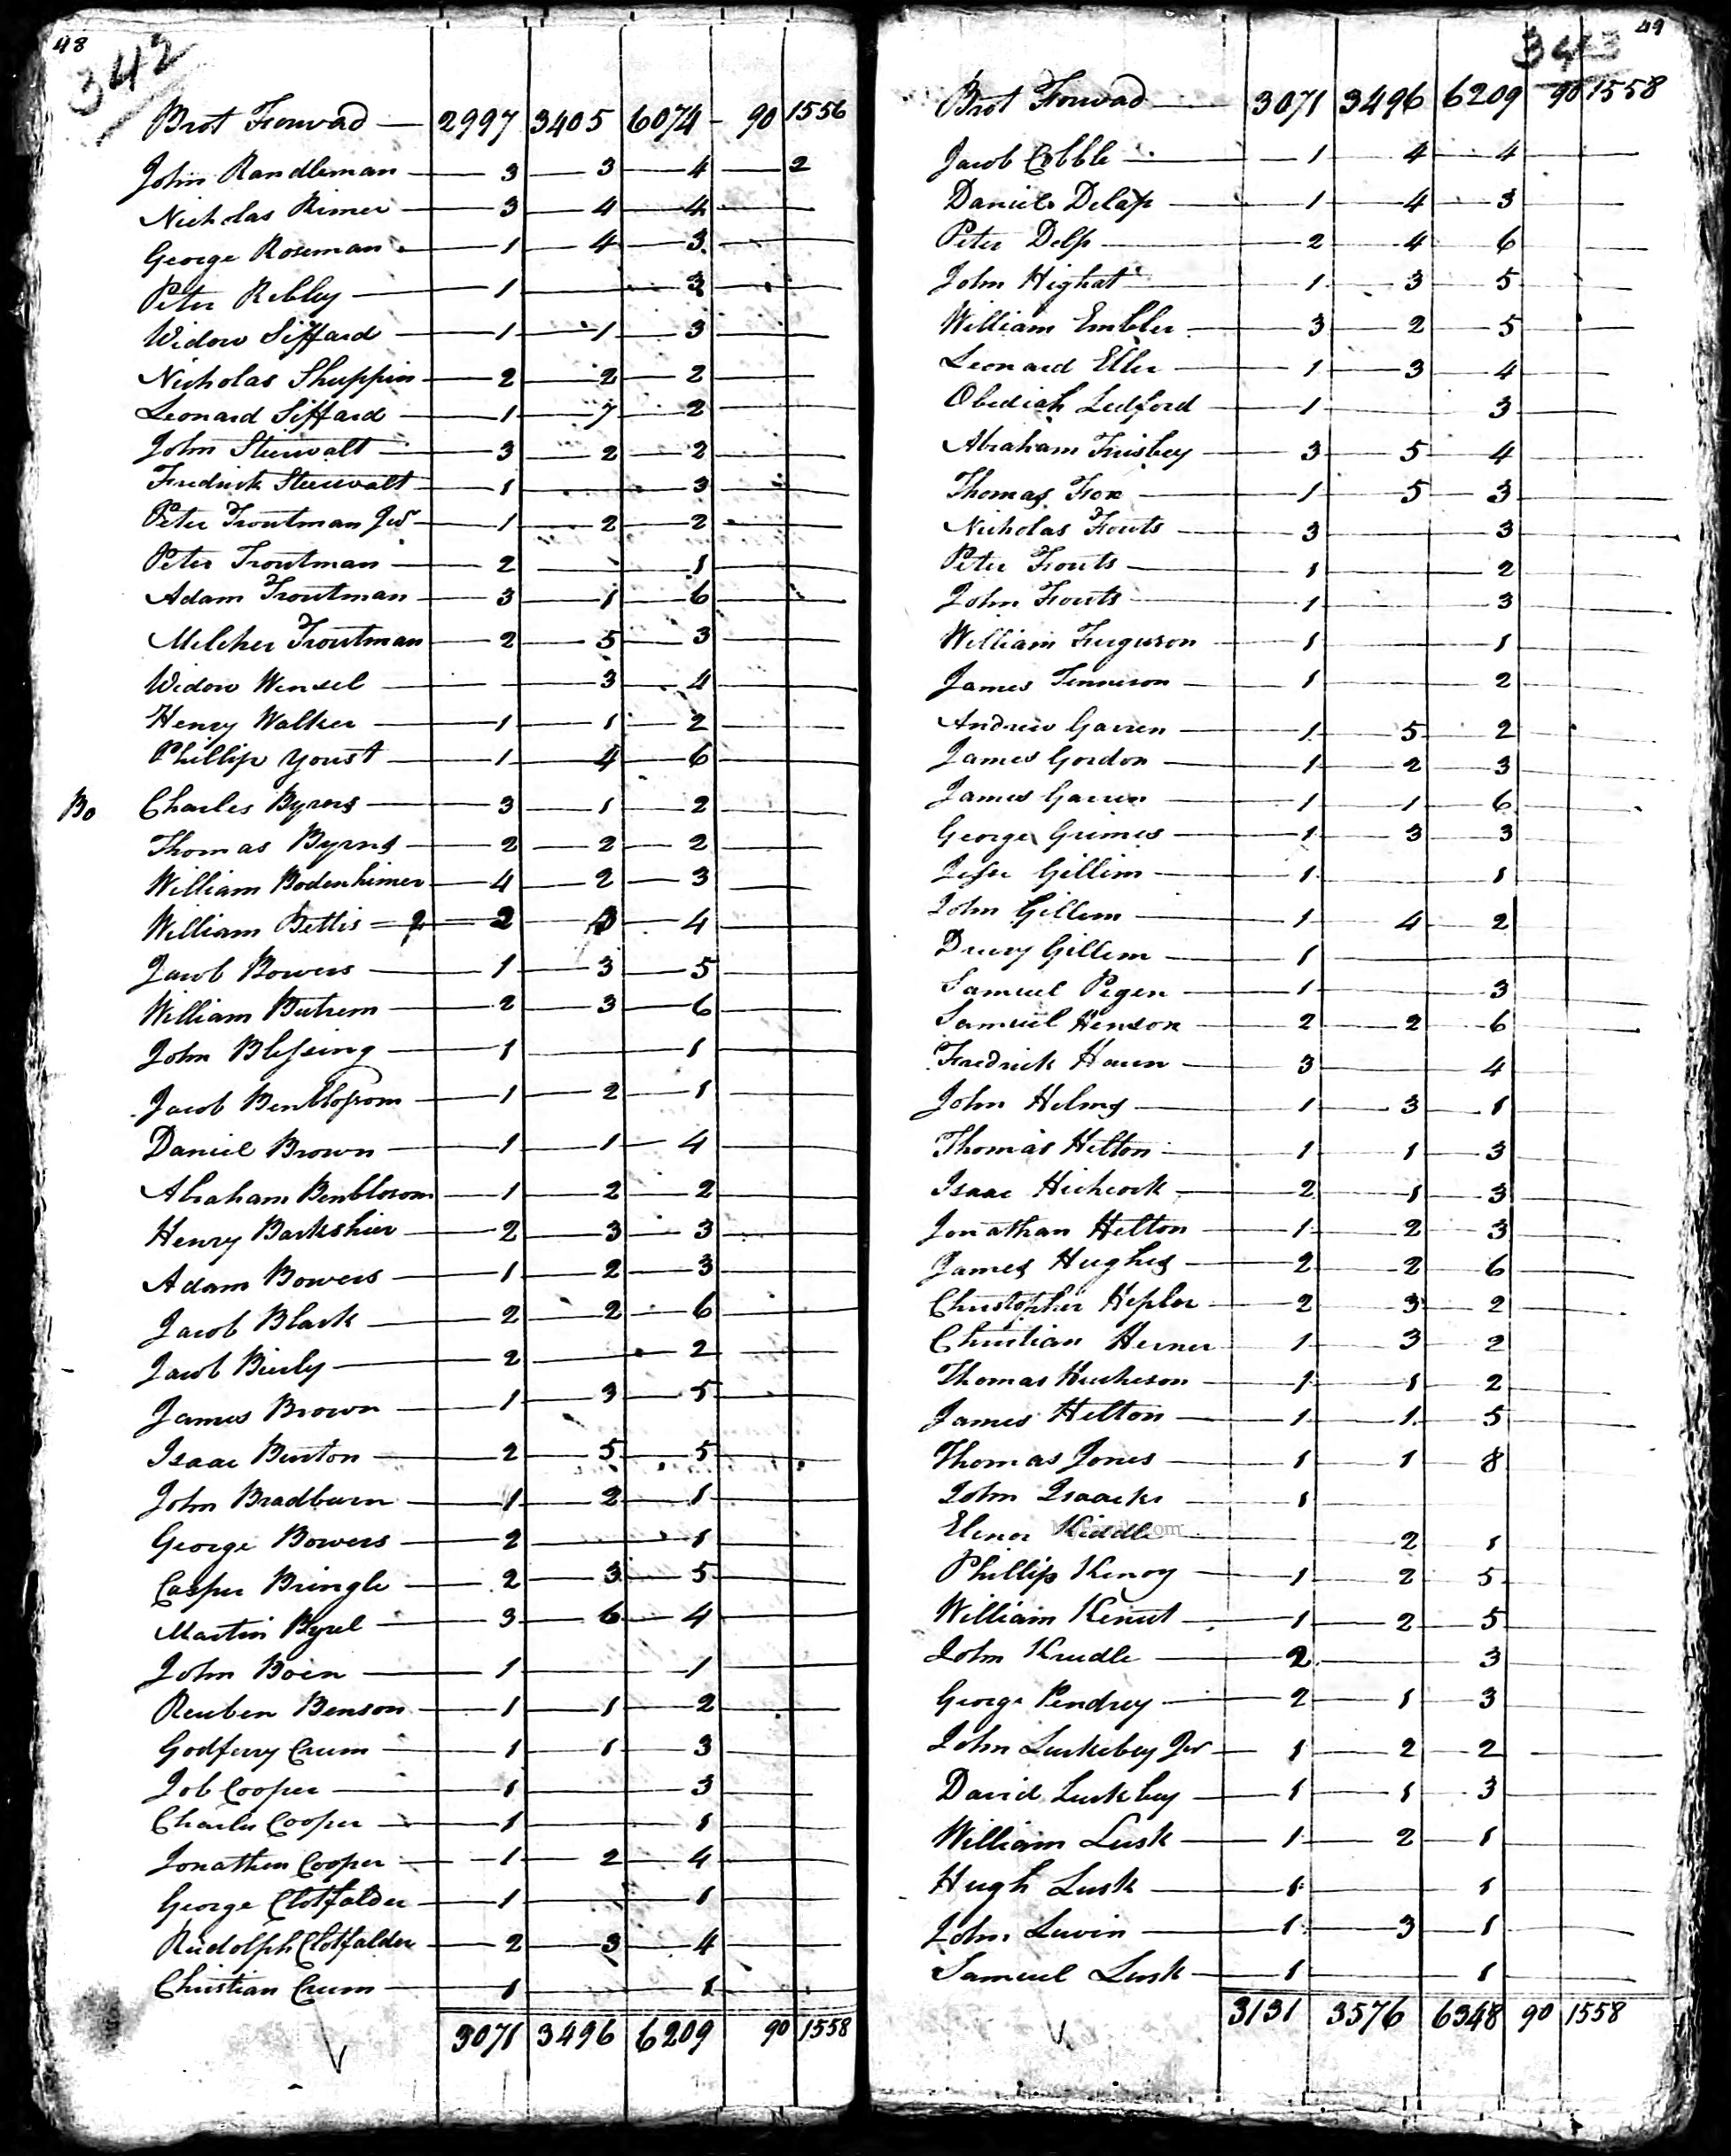 48
342
Brot Forwad 2997 3405 6074 90 1556
John Randleman 3 3 4 2
Nicholas Rimer 3 4 4
George Roseman 1 4 3
Peter Ribley 1 3
Widow Siffard 1 1 3
Nicholas Shuppin 2 2 2
Leonard Siffard 1 7 2
John Steuvalt 3 2 2
Fredrick Steuvalt 1 3
Peter Troutman Jur 1 2 2
Peter Troutman 2 1
Adam Troutman 3 1 6
Melcher Troutman 2 5 3
Widow Wensel 3 4
Henry Walker 1 1 2
Phillip Youst 1 4 6
Bo Charles Byrns 3 1 2
Thomas Byrns 2 2 2
William Bodenhimer 4 2 3
William Bettis 2 2 4
Jacob Bowers 1 3 5
William Butrem 2 3 6
John Blessing 1 1
Jacob Benblossom 1 2 1
Daniel Brown 1 1 4
Abraham Benblosom 1 2 2
Henry Barkshier 2 3 3
Adam Bowers 1 2 3
Jacob Black 2 2 6
Jacob Bierly 2 2
James Brown 1 3 5
Isaac Burton 2 5 5
John Bradburn 1 2 1
George Bowers 2 1
Casper Bringle 2 3 5
Martin Byrel 3 6 4
John Boen 1 1
Reuben Benson 1 1 2
Godferry Crum 1 1 3
Job Cooper 1 3
Charles Cooper 1 1
Jonathen Cooper 1 2 4
George Clotfalder 1 1
Rudolph Clotfalder 2 3 4
Christian Crum 1 1
3071 3496 6209 90 1558
49
343
Brot Forwad 3071 3496 6209 90 1558
Jacob Cobble 1 4 4
Daniel Delap 1 4 3
Peter Delp 2 4 6
John Highat 1 3 5
William Embler 3 2 5
Leonard Eller 1 3 4
Obediah Ledford 1 3
Abraham Frisbey 3 5 4
Thomas Fron 1 5 3
Nicholas Fouts 3 3
Peter Fouts 1 2
John Fouts 1 3
William Ferguson 1 1
James Tennison 1 2
Andrew Garren 1 5 2
James Gordon 1 2 3
James Garren 1 1 6
George Grimes 1 3 3
Jesse Gillim 1 1
John Gillem 1 4 2
Drury Gillem 1
Samuel Pegen 1 3
Samuel Henson 2 2 6
Fredrick Haun 3 4
John Helms 1 3 1
Thomas Hilton 1 1 3
Isaac Hichcock 2 1 3
Jonathan Helton 1 2 3
James Hughs 2 2 6
Christopher Hepler 2 3 2
Christian Herner 1 3 2
Thomas Hucheson 1 1 2
James Helton 1 1 5
Thomas Jones 1 1 8
John Isaacks 1
Elenor Kiddle 2 1
Phillip Kenoy 1 2 5
William Kenut 1 2 5
John Krudle 2 3
George Pendrey 2 1 3
John Luckebey Jur 1 2 2
David Luckbey 1 1 3
William Lusk 1 2 1
Hugh Lusk 1 1
John Lewin 1 3 1
Samuel Lusk 1 1
3131 3576 6348 90 1558